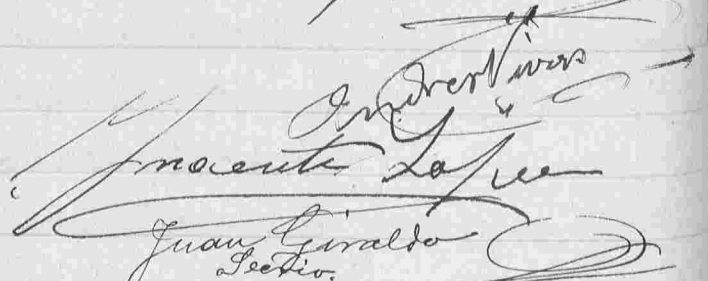 Andres Vivas
Ynocente López
Juan Giraldo
Sectrio.